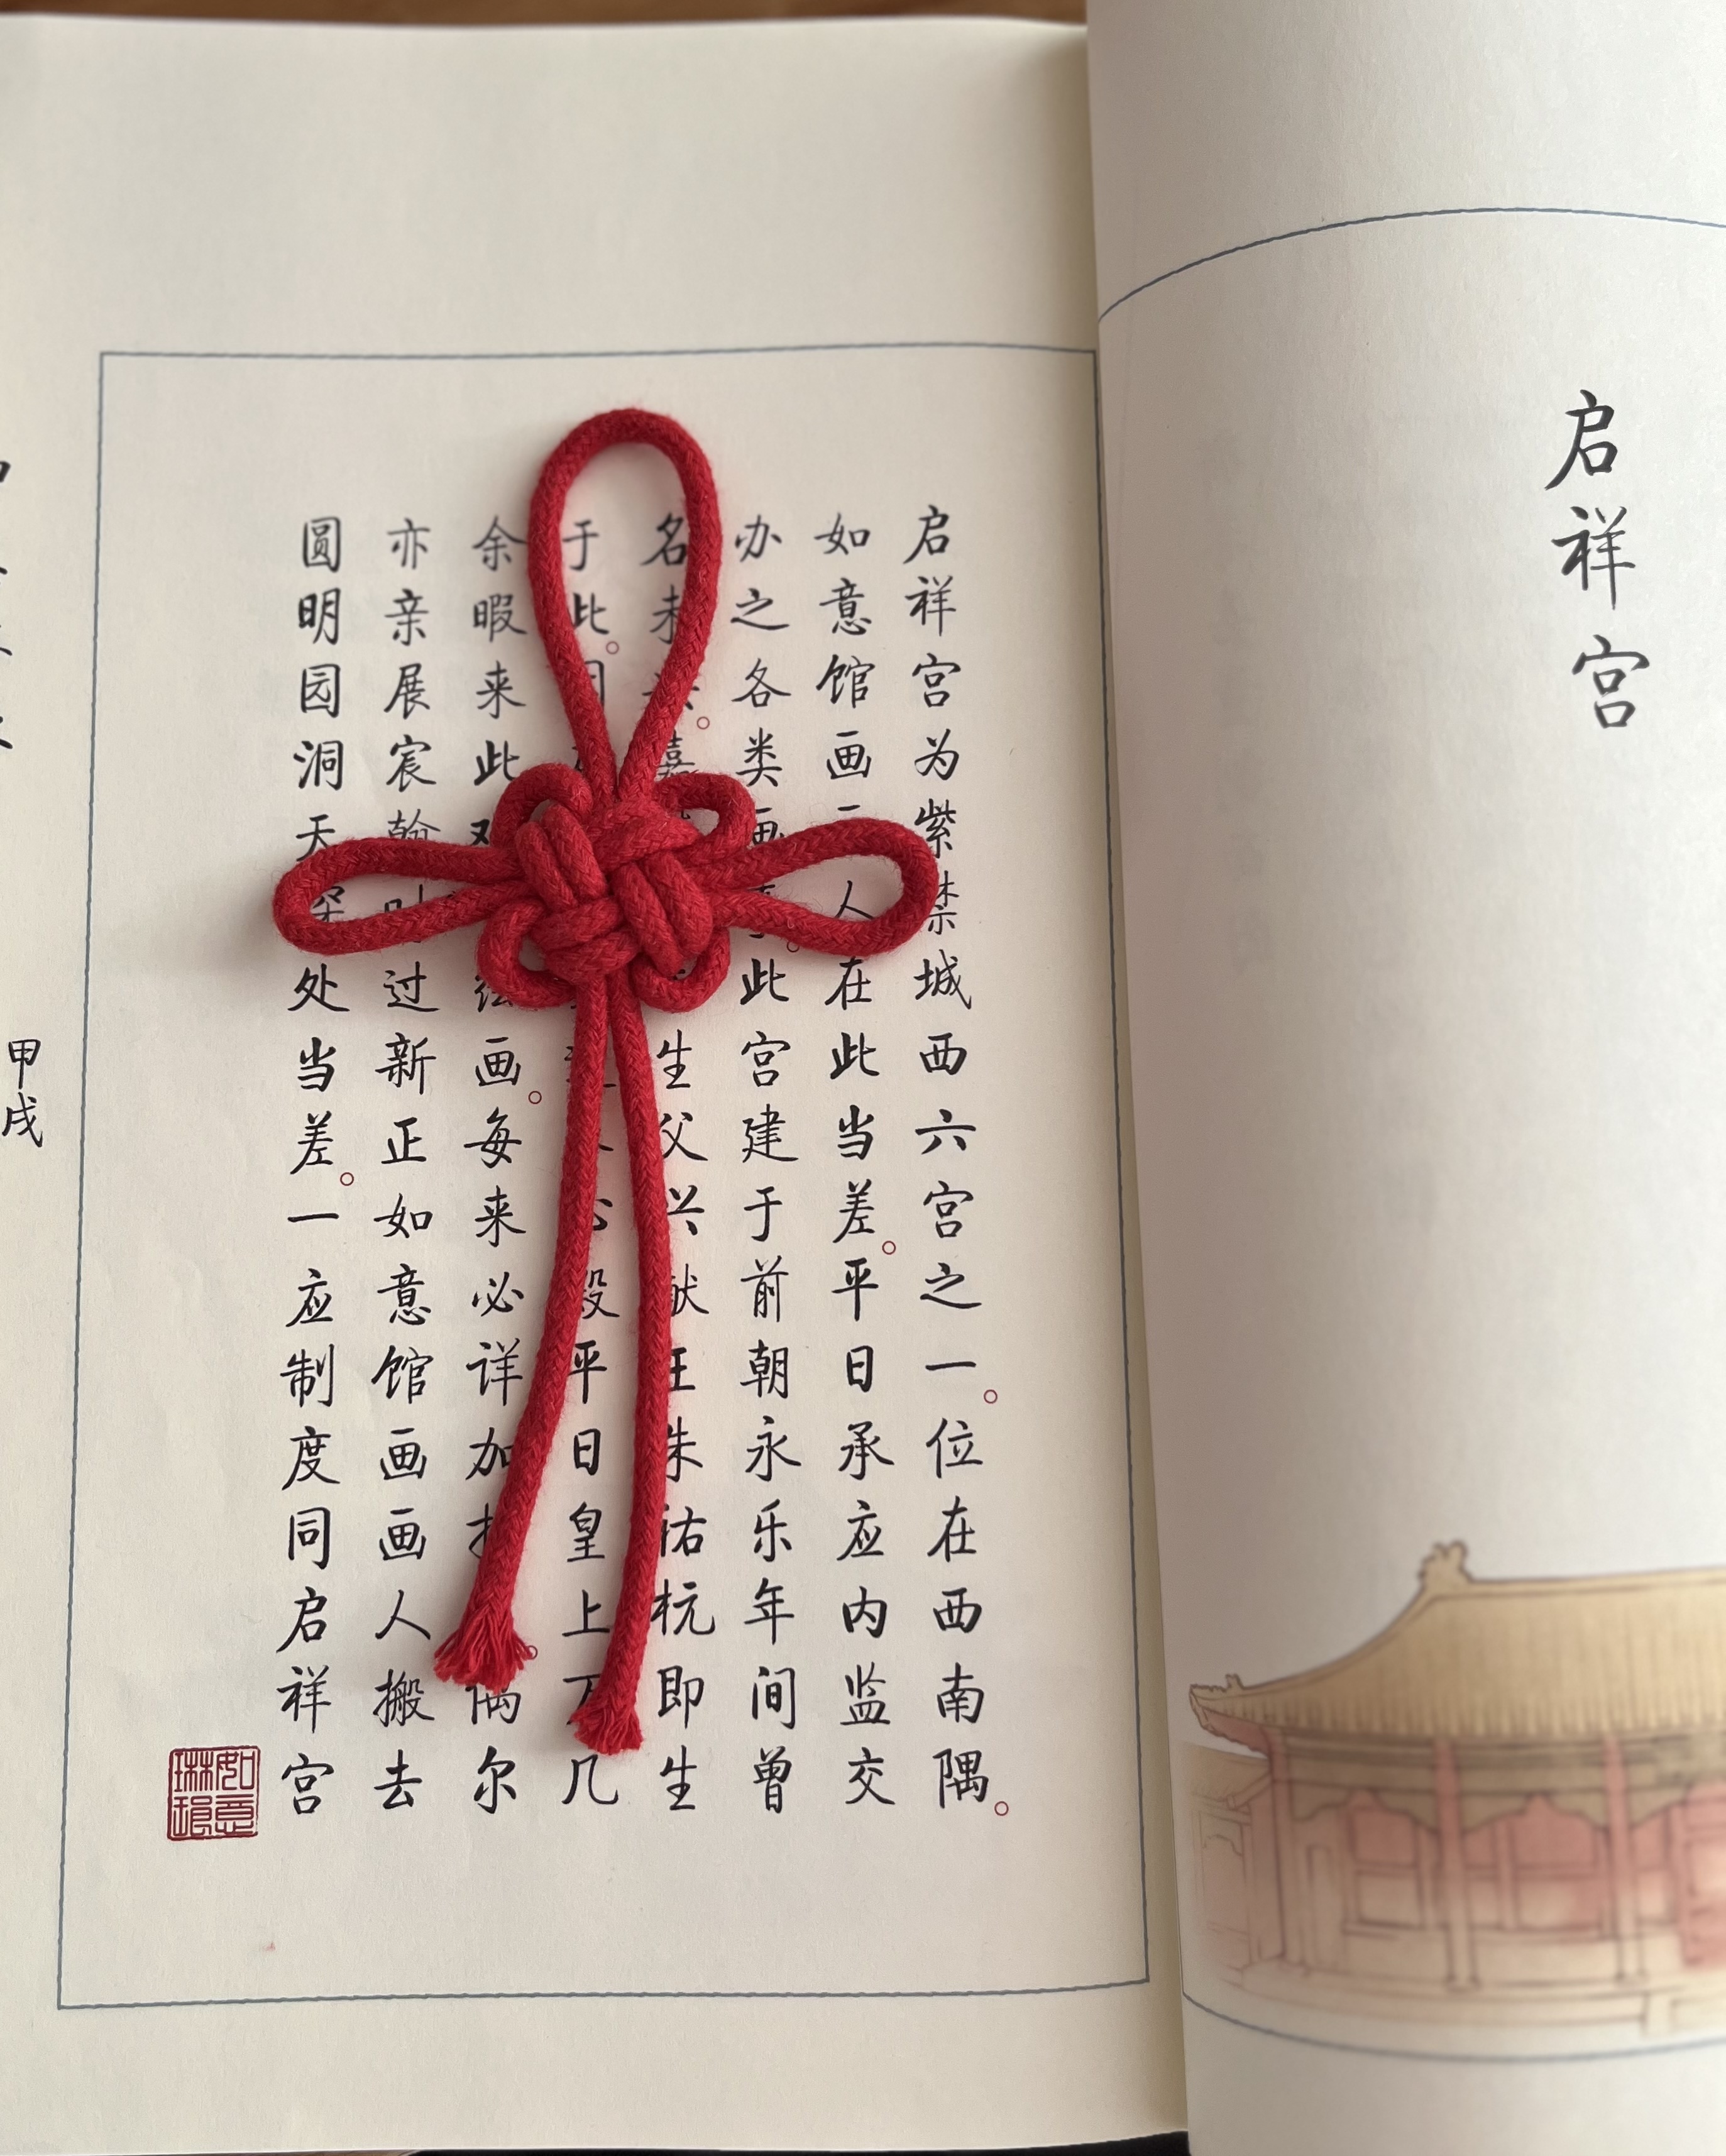 启祥宫
启祥宫为紫禁城西六宫之一。位在西南隅。
如意馆画人在此当差。平日承应内监交
办之各类画。此宫建于前朝永乐年间曾
名未嘉生父兴献王朱祐杭即生
于此。殿平日皇上万几
余暇来此绘画。每来必详加。偶尔
亦亲展宸翰时过新正如意馆画画人搬去
圆明园洞天深处当差。一应制度同启祥宫
如意琳琅
甲戌